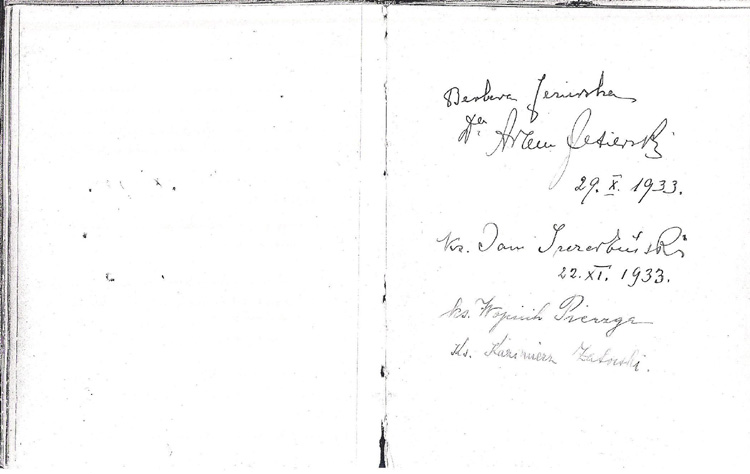 Barbara Jezierska
Dr. Artem Jezierski
29. X. 1933.
ks. Jan Szczerbiński
22. XI. 1933.
ks. Wojciech Pieczga
Ks. Kazimierz